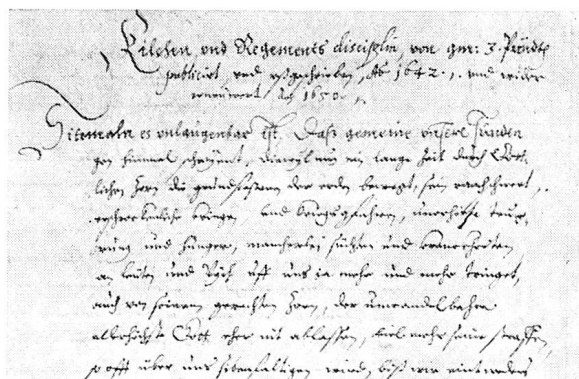 Kilchen und Regements disciplin, von gmr: 3. Pündtē
publicirt, und ußgschriben, Aō 1642., und wider
renoviert, Aō 1650.
Sitemaln es unlaugenbar ist. Daß gemeine unsere Sünden
gen himmel schreyent, dieweil nun ein lange Zeit durch Gött-
lichen Zorn die grundfesten der erden bewegt, sein
erschreckenliche kriegen, und kriegsgfahren, unerhörte teur-
rung und hunger, mancherlei suchten und kranckheiten,
an leuten und Vych uff uns ie mehr und mehr tringet,
auch von seinem gerechten Zorn, der unwandelbahre
allerhöchste Gott eher nit ablassen, viel mehr seine straffen,
so offt über uns sibenfaltigen wird, biß wir eintweders